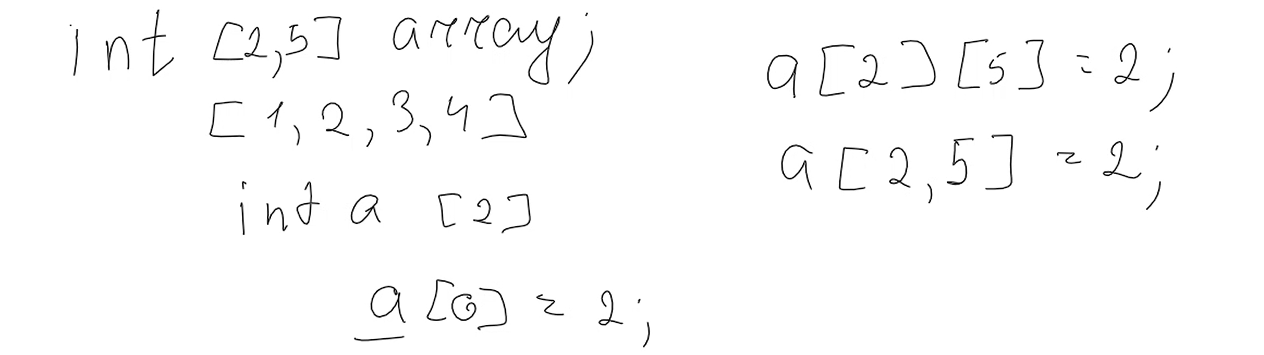 int [2,5] array;
[1, 2, 3, 4]
int a [2]
a[0] = 2;
a[2][5] = 2;
a[2,5] = 2;